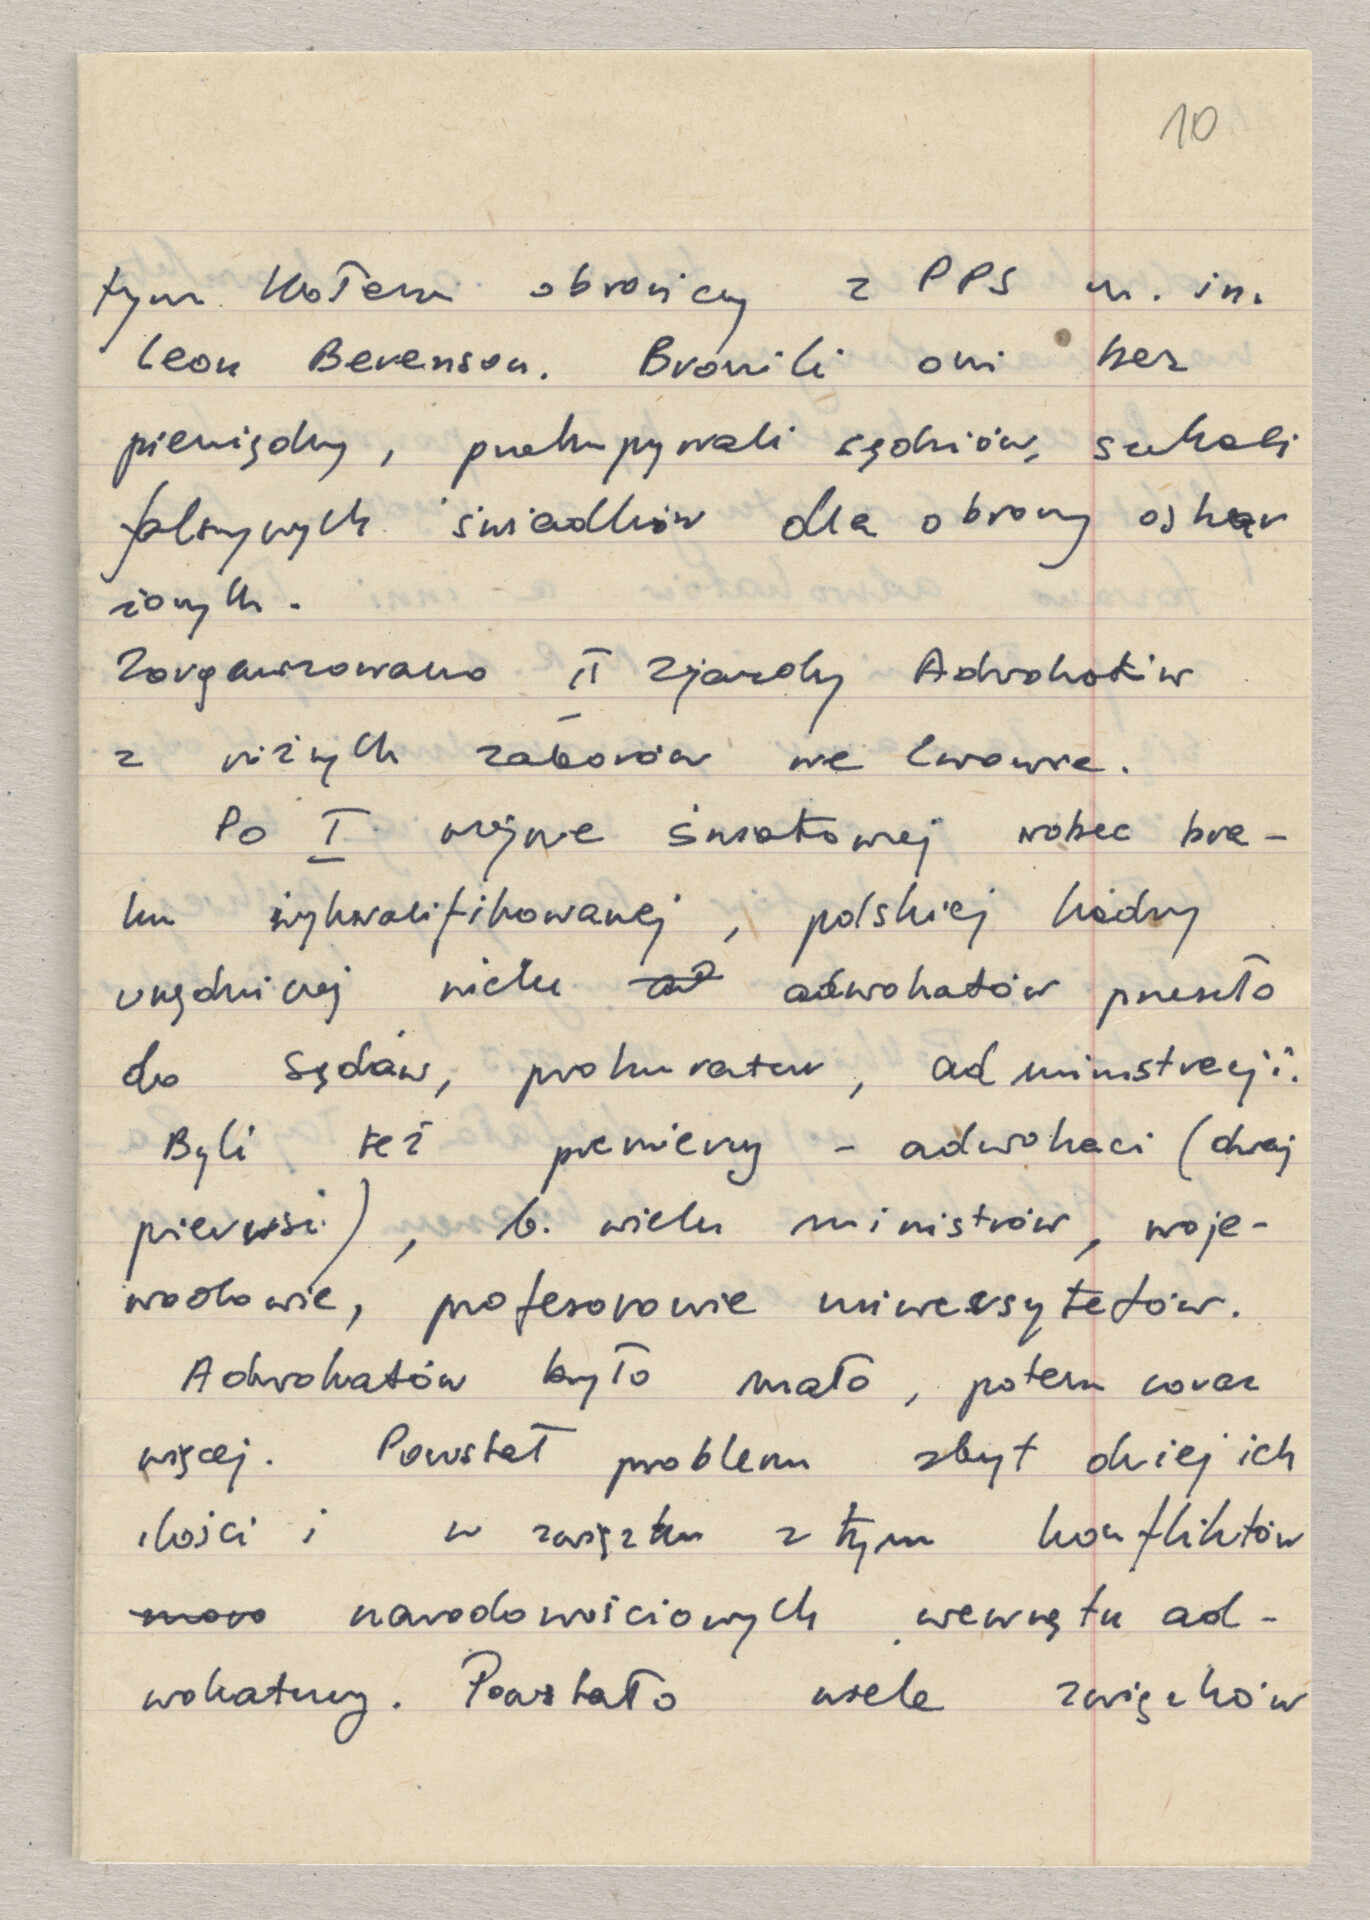 10
tym Kołem obrońcy z PPS m. in.
Leon Berenson. Bronili oni bez
pieniędzy, przekupywali sędziów, szukali
fałszywych świadków dla obrony oskar
żonych.
Zorganizowano II zjazdy Adwokatów
z różnych zaborów we Lwowie.
Po I wojnie światowej wobec bra-
ku wykwalifikowanej, polskiej kadry
urzędniczej wielu adwokatów przeszło
do sądów, prokuratur, administracji.
Byli też premierzy - adwokaci (dwaj
pierwsi), b. wielu ministrów, woje-
wodowie, profesorowie uniwersytetów.
Adwokatów było mało, potem coraz
więcej. Powstał problem zbyt dużej ich
ilości i w związku z tym konfliktów
narodowościowych wewnątrz ad-
wokatury. Powstało wiele związków